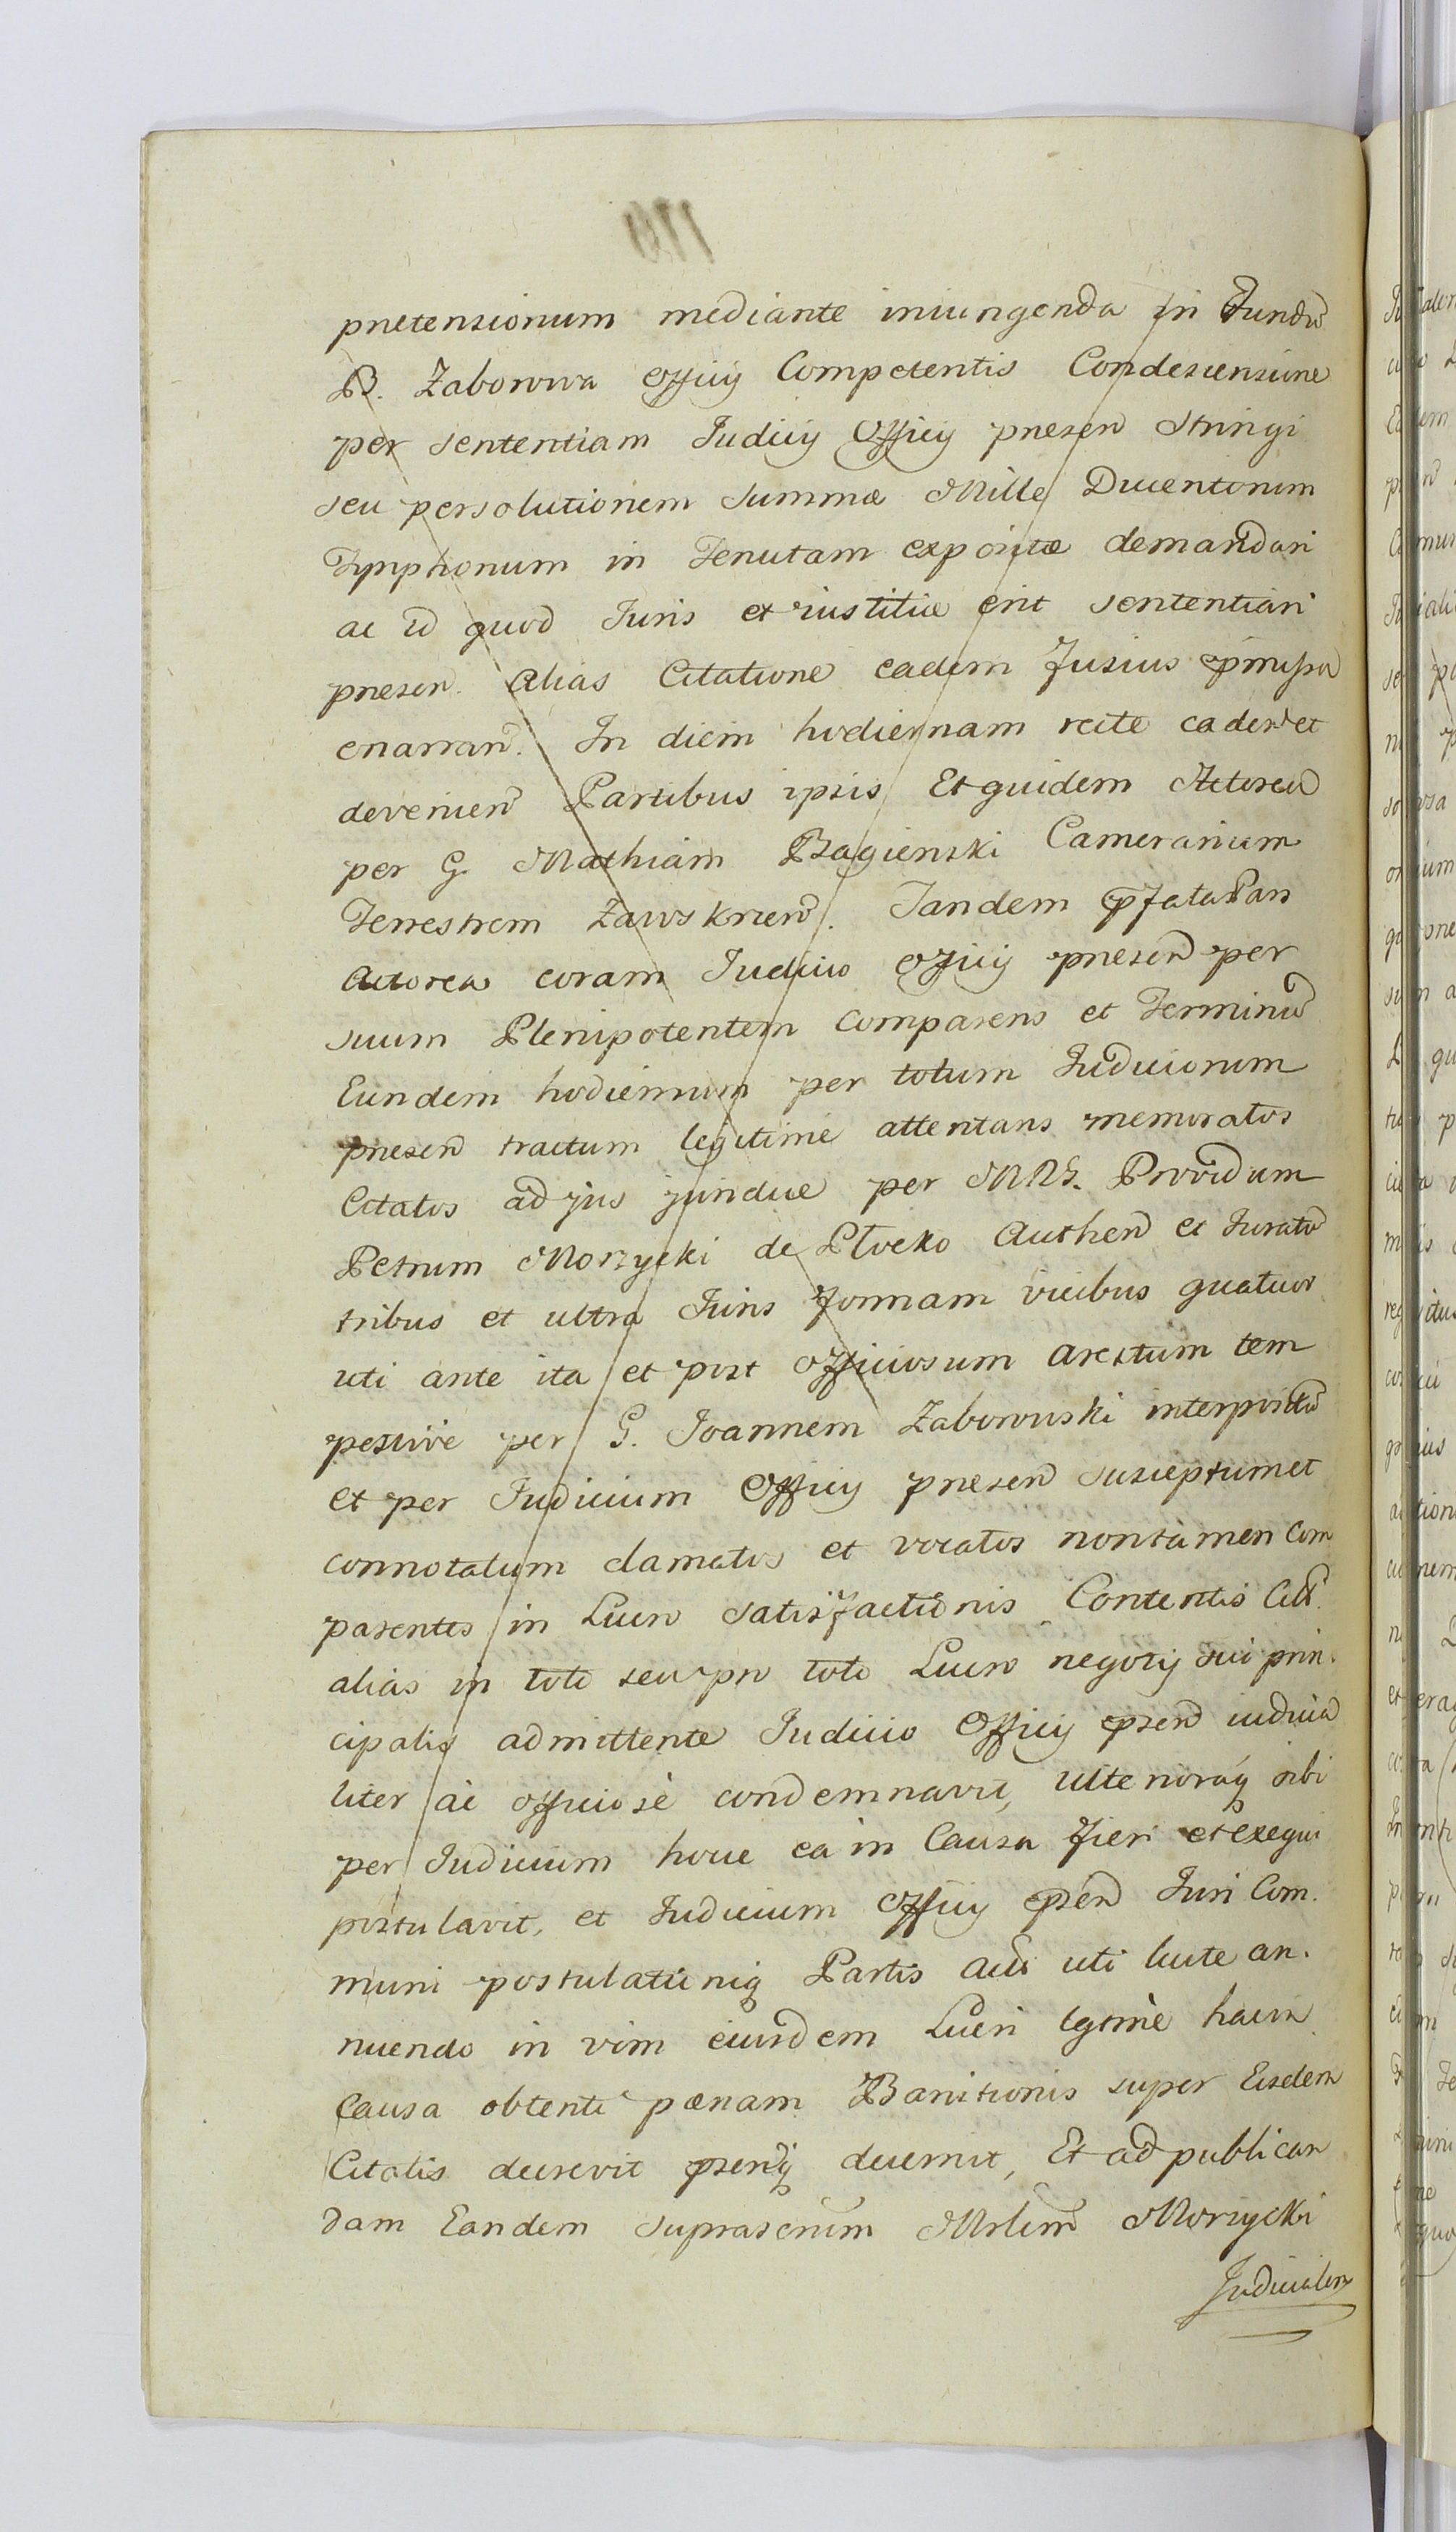 pretensionum mediante iniungenda in Fundũ
B. Zaborowa Officij Competentis Condescensione
per sententiam Iudicij Officij presen̄ Stringi
seu persolutionem Summæ Mille Ducentorum
Tynphonum in Tenutam expositæ demandari
ac id quod Iuris et iustitiæ erit sententiari
presen. alias Citatione eadem fusius p̄missa
enarran̄. In diem hodiernam recte caden̄ et
devenien̄ Partibus ipsis Et quidem Actorea
per G. Mathiam Bagienski Camerarium
Terrestrem Zawskrzen̄. Tandem p̄fata Pars
Actorea coram Iudicio Officij presen̄ per
suum Plenipotentem comparens et Terminũ
Eundem hodiernum per totum Iudiciorum
presen̄ tractum legitime attentans memoratos
Citatos ad jus juridice per MRG. Providum
Petrum Morzycki de Plocko Authen̄ et Iuratũ
tribus et ultra Iuris formam vicibus quatuor
uti ante ita et post officiosum arestum tem
pestivè per G. Joannem Zaborowski interpositũ
et per Iudicium Officij presen̄ susceptum et
connotatum clamatos et vocatos non tamen Com
parentes in Lucro satisfactionis Contentis Citt̃.
alias in toto seu pro toto Lucro negotij sui prin.
cipalis admittente Iudicio Officij p̄sen̄ iudicia
liter ac officiosè condemnavit, ulterioraq̨ sibi
per Iudicium hocce ea in Causa fieri et exequi
postulavit, et Iudicium Officij p̄sen̄ Iuri Com.
muni postulationiq̨ Partis Acti uti iuste an.
nuendo in vim eiusdem Lucri lgtmè hacin
Causa obtenti pænam Banitionis super Eisdem
Citatis decrevit p̄sentiq̨ decernit, Et ad publican
dam Eandem suprascrium Mrlem̃ Morzycki
Judicialem